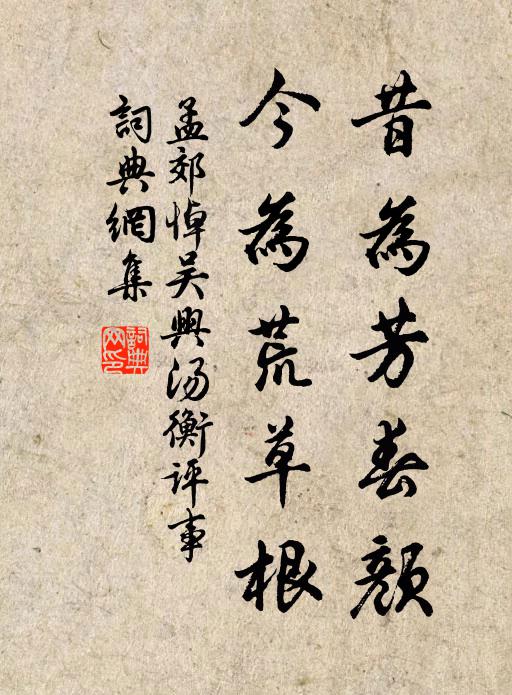 昔為芳春顏
今為荒草根
孟郊悼吴興汤衡评事
詞典網集
詞典
网印